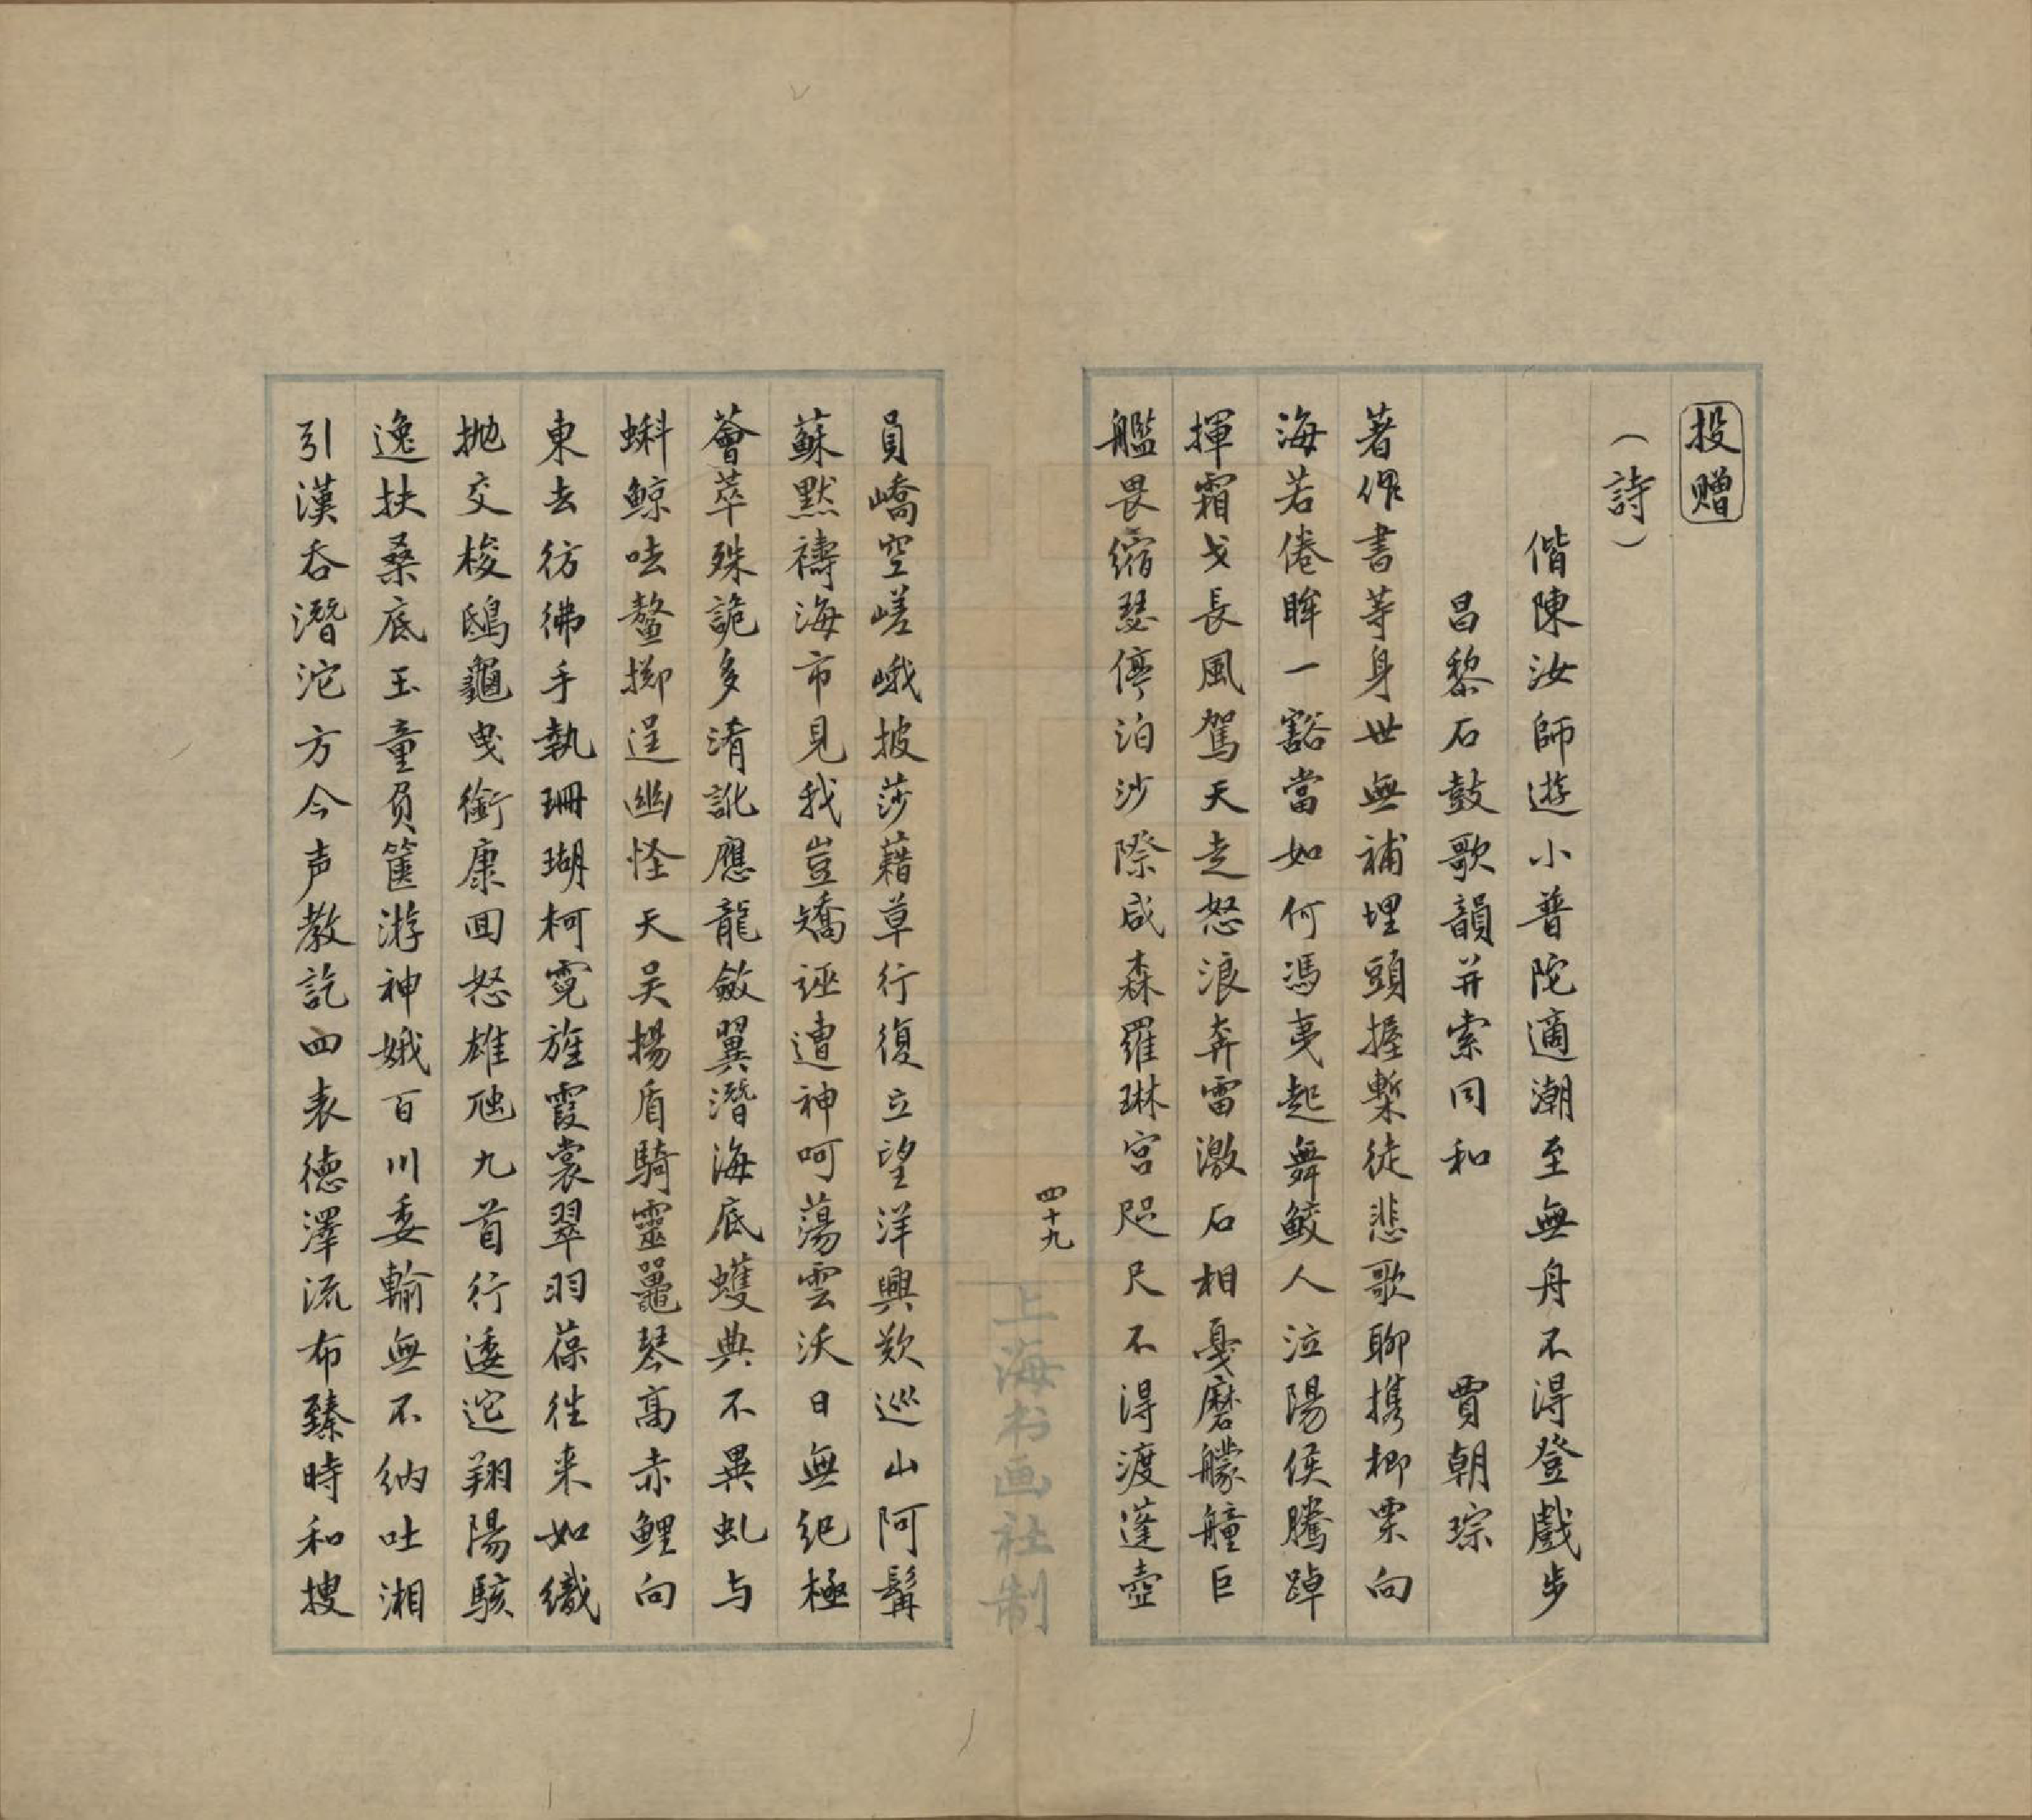 投赠
（詩）
偕陳汝師遊小普陀適潮至無舟不得登戲步
昌黎石鼓歌韻并索同和 賈朝琮
著作書等身世無補埋頭握槧徒悲歌聊携楖栗向
海若倦眸一豁當如何馮夷起舞鮫人泣陽侯騰踔
揮霜戈長風駕天走怒浪奔雷激石相戛磨艨艟巨
艦畏縮瑟停泊沙際咸森羅琳宮咫尺不得渡蓬壺
四十九
上海书画社制
員嶠空嵯峨披莎藉草行復立望洋興歎巡山阿髯
蘇默禱海市見我豈矯誣遭神呵蕩雲沃日無紀極
薈萃殊詭多淆訛應龍斂翼潛海底蠖典不異虬与
蝌鯨呿鰲擲逞幽怪天吴揚盾騎靈鼉琴高赤鯉向
東去彷彿手執珊瑚柯霓旌霞裳翠羽葆往来如織
抛交梭鴟龜曳銜康回怒雄虺九首行逶迤翔陽駭
逸扶桑底玉童負篋游神娥百川委輸無不納吐湘
引漢吞潛沱方今声教訖四表德澤流布臻時和搜